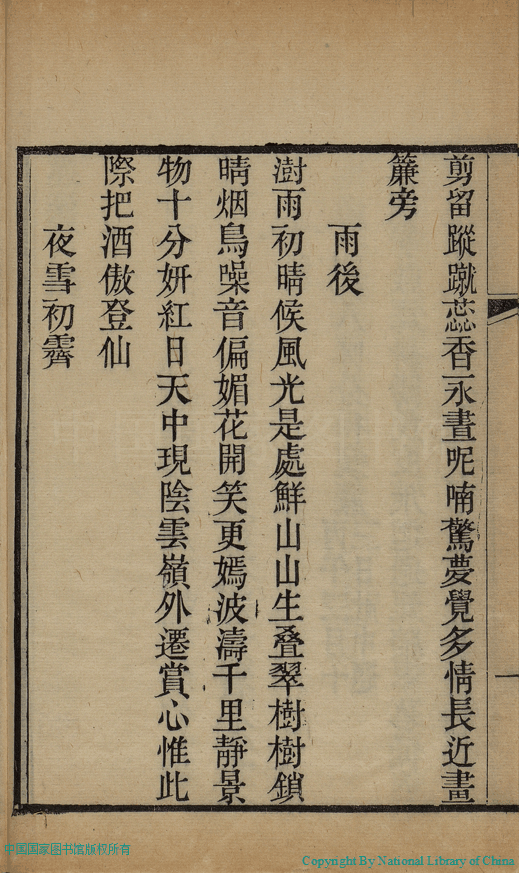 剪留蹤蹴蕊香一永晝呢喃驚夢覺多情長近畫
簾旁
雨後
澍雨初晴候風光是處鮮山山生叠翠樹樹鎖
晴烟鳥噪音偏媚花開笑更嫣波濤千里靜景
物十分妍紅日天中現陰雲嶺外遷賞心惟此
際把酒傲登仙
夜雪初霽
中国国家图书馆版权所有
Copyright By National Library of China